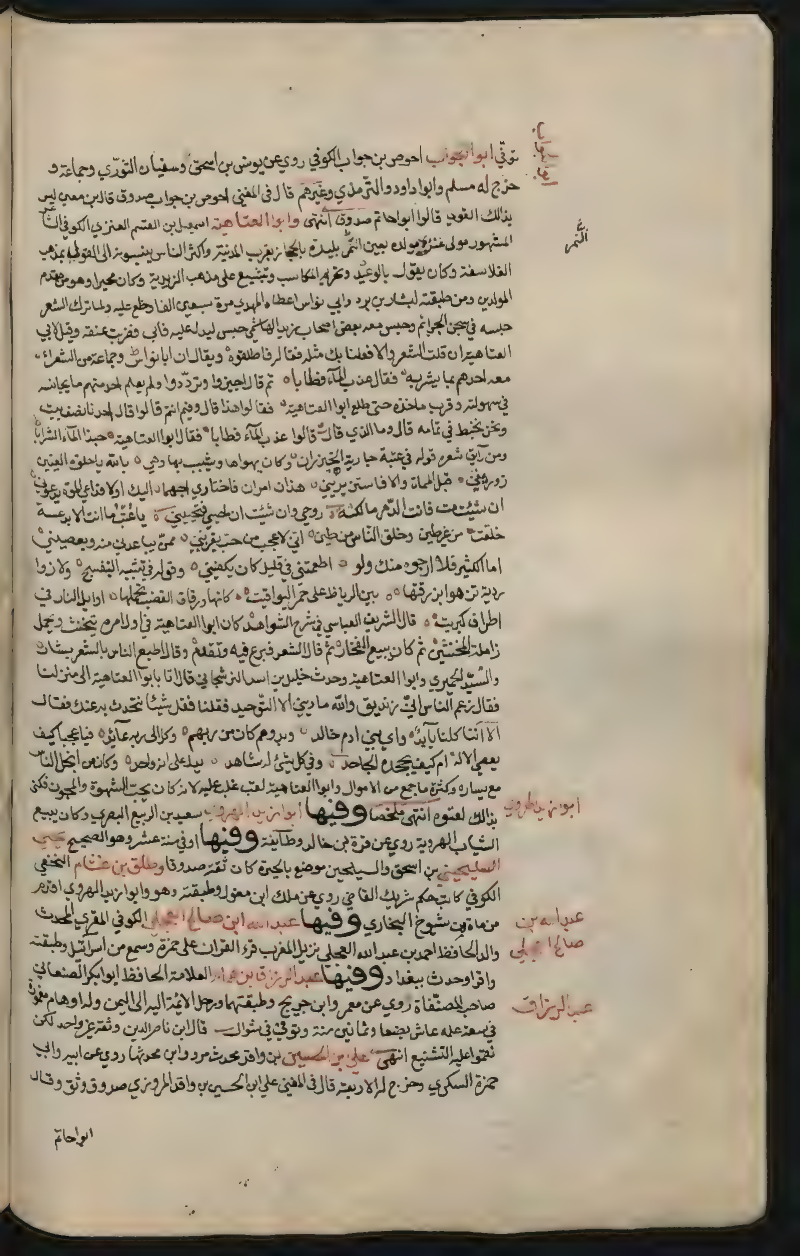 ابو الجواب
توفي ابو الجواب احوص بن جواب الكوفي روي عن يونس بن اسحق وسفيان الثوري وجماعة و
خرج له مسلم وابو داود والترمذي وغيرهم قال في المغني احوص بن جواب صدوق قال ابن معين ليس
بذالك القوي قالوا ابو حاتم صدوق انتهى وابو العتاهية اسمعيل ابن القسم العنزي الكوفي
المشهور مولى عنزة مولده بعين التمر بليدة بالحجاز بقرب المدينة واكثر الناس ينسبونه الى القول بمذهب
الفلاسفة وكان يقول بالوعيد وتحريم المكاسب ويتشيع على مذهب الزيدية وكان مجبرا وهو من مقدم
المولدين ومن طبقته بشار بن برد وابي نواس اعطاه المهدي مرة سبعين الفا وخلع عليه ولما ترك الشعر
حبسه في سجن الجرائم وحبس معه بعض اصحاب زيد الهاشمي حبس ليدل عليه فابى فضرب عنقه وقيل لابي
العتاهية ان قلت الشعر والا فعلنا بك مثله فقاله فاطلقوه ويقال ان ابا نواس وجماعة من الشعراء
معه احدهم بما يشربه فقال عذب الماء فطابا ثم قال اجيزوا وترددوا ولم يعلم احد منهم ما يجانسه
في سهولته وقرب ماخذه حتى طلع ابو العتاهية فقالوا هذا قال وفيم انتم قالوا قال احدنا نصف بيت
ونحن نخبط في تمامه قال وما الذي قال قالوا عذب الماء فطابا فقال ابو العتاهية حبذا الماء الشرابا
ومن رايق شعره قوله في عتبة جارية الخيزران وكان يهواها ويشبب بها وهي بالله يا حلوة العينين
زوريني قبل الممات والا فاستزيريني هذان امران فاختاري احبهما اليك اولا فداعي الموت يدعوني
ان شئت مت فانت الدهر مالكة روحي وان شئت ان احيى فتحييني يا عتب ما انت الا بدعة
خلقت من غير طين وخلق الناس من طين اني لاعجب من حب يقربني ممن يباعدني منه ويعصيني
اما الكثير فلا ارجوه منك ولو اطمعتني في قليل كان يكفيني وقوله في تشبيه البنفسج ولازوا
ردية تزهو بزرقتها بين الرياض على حمر اليواقيت كانها ورقاق القضب تحملها اوايل النار في
اطراف كبريت قال الشريف العباسي في شرح الشواهد كان ابو العتاهية في اول امره يتخنث ويحمل
زاملة المخنثين ثم كان يبيع الفخار ثم قال الشعر فبرع فيه وتقدم وقال اطبع الناس بالشعر بشار
والسيد الحميري وابو العتاهية وحدث خليل بن اسد النوشجاني قال اتانا ابو العتاهية الى منزلنا
فقال زعم الناس اني زنديق والله ما ديني الا التوحيد فقلنا فقل شيئا نتحدث به عنك فقال
الا اننا كلنا بايد واي بني ادم خالد وبدوهم كان من ربهم وكل الى ربه عايد فيا عجبا كيف
يعصى الاله ام كيف يجحده الجاحد وفي كل شيئ له شاهد يدل على انه واحد وكان من ابخل الناس
مع يساره وكثرة ما جمع من الاموال وابو العتاهية لقب غلب عليه لانه كان يحب الشهوة والمجون فكنى
بذالك لعتوه انتهى ملخصا وفيها ابو زيد الهروي سعيد بن الربيع البصري وكان يبيع
الثياب الهروية روي عن قرة بن خالد وطايفة وفيها او في سنة عشر وهو الصحيح يحيى
السيلحيني بن اسحق والسيلحين موضع بالحيرة كان ثقة صدوقا وطلق بن غنام النخعي
الكوفي كاتب حكم شريك القاضي روي عن ملك ابن مغول وطبقته وهو وابو زيد الهروي اقدم
من مات من شيوخ البخاري وفيها عبد الله ابن صالح العجلي الكوفي المقري المحدث
والد الحافظ احمد بن عبد الله العجلي نزيل المغرب قرء القران على حمزة وسمع من اسرائيل وطبقته
واقرا وحدث ببغداد وفيها عبد الرزاق بن همام العلامة الحافظ ابو بكر الصنعاني
صاحب المصنفاة روي عن معمر وابن جريج وطبقتهما ورحل الائمة اليه الى اليمن وله اوهام مغمورة
في سعة علمه عاش بضعا وثمانين سنة وتوفي في شوال قال ابن ناصر الدين وثقه غير واحد لكن
نقموا عليه التشيع انتهى علي بن الحسين بن واقد محدث مرو وابن محدثها روي عن ابيه وابي
حمزة السكري وخرج له الاربعة قال في المغني علي ابن الحسين بن واقد المروزي صدوق وثق وقال
ابو حاتم
التمر
ابو زيد الهروي
عبد الله بن
صالح العجلي
عبد الرزاق